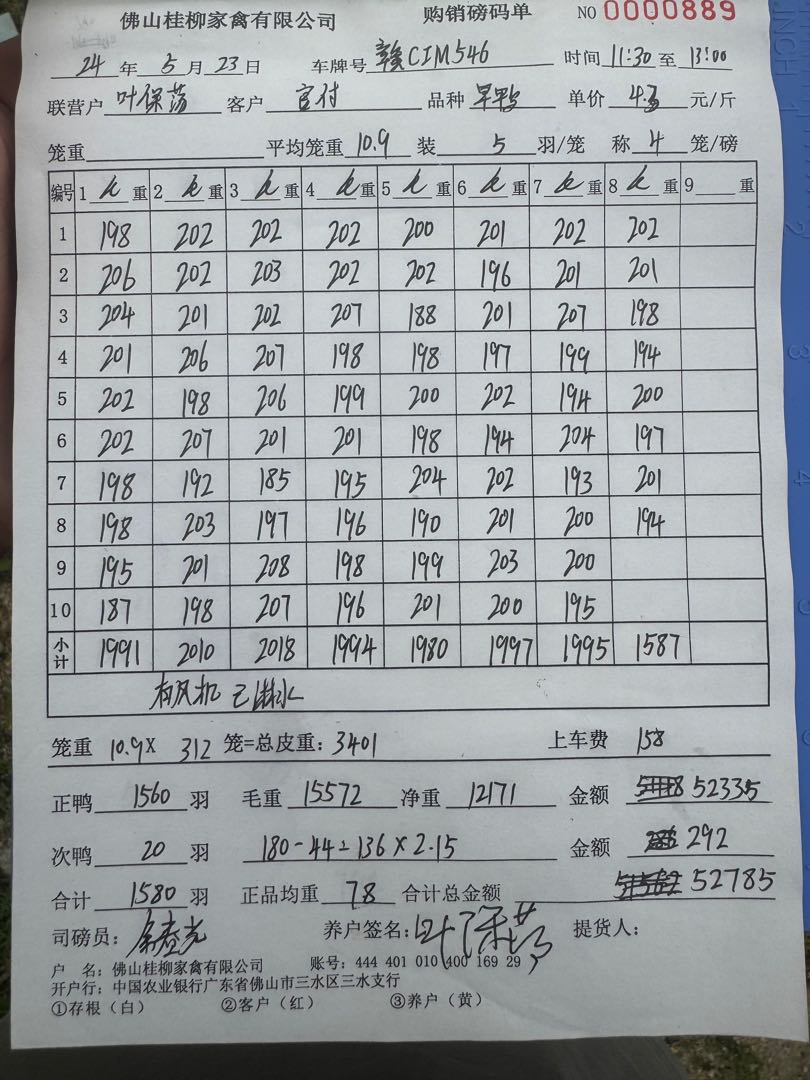 佛山桂柳家禽有限公司 购销磅码单 NO 0000889
24 年 5 月 23 日 车牌号 赣CIM546 时间 11:30 至 13:00
联营户 叶保荡 客户 官付 品种 旱鸭 单价 4.3 元/斤
笼重 平均笼重 10.9 装 5 羽/笼 称 4 笼/磅
编号 1 毛 重 2 毛 重 3 毛 重 4 毛 重 5 毛 重 6 毛 重 7 毛 重 8 毛 重 9 重
1 198 202 202 202 200 201 202 202
2 206 202 203 202 202 196 201 201
3 204 201 202 207 188 201 207 198
4 201 206 207 198 198 197 199 194
5 202 198 206 199 200 202 194 200
6 202 207 201 201 198 194 204 197
7 198 192 185 195 204 202 193 201
8 198 203 197 196 190 201 200 194
9 195 201 208 198 199 203 200
10 187 198 207 196 201 200 195
小计 1991 2010 2018 1994 1980 1997 1995 1587
有风机 已淋水
笼重 10.9X 312 笼=总皮重: 3401 上车费 158
正鸭 1560 羽 毛重 15572 净重 12171 金额 52335
次鸭 20 羽 180-44=136×2.15 金额 292
合计 1580 羽 正品均重 7.8 合计总金额 52785
司磅员: 养户签名: 叶保荡 提货人:
户 名: 佛山桂柳家禽有限公司 账号: 444 401 010 400 169 29
开户行: 中国农业银行广东省佛山市三水区三水支行
①存根(白) ②客户(红) ③养户(黄)